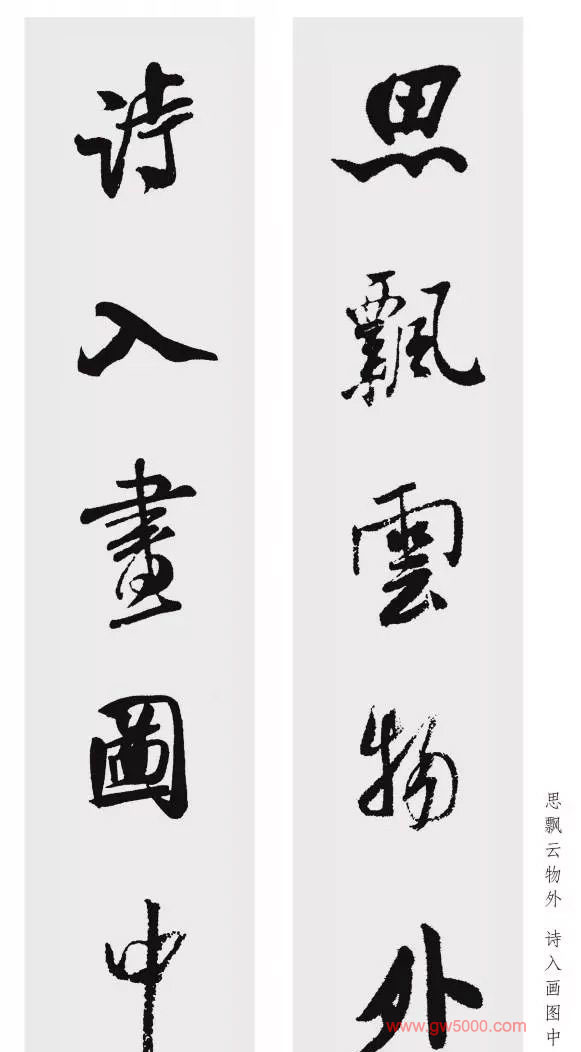 思飄雲物外
詩入畫圖中
思飘云物外 诗入画图中
www.gw5000.com